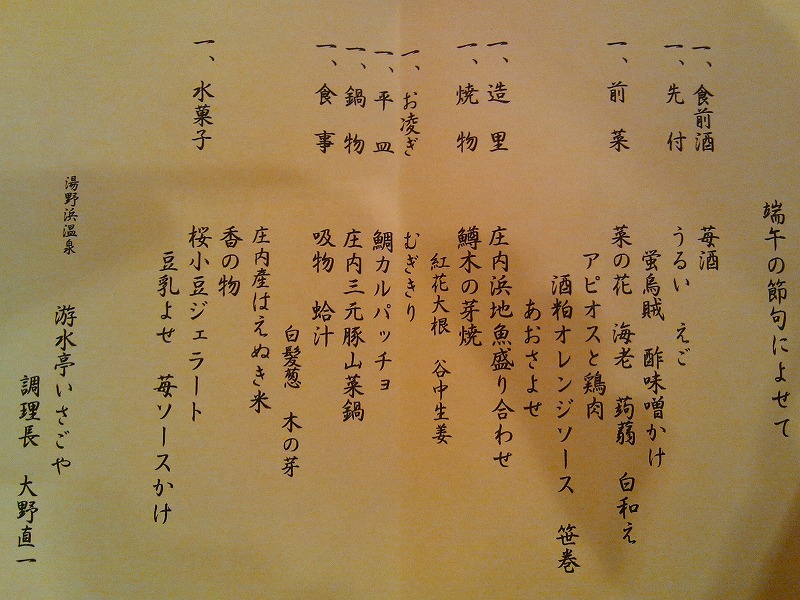 端午の節句によせて
一、食前酒　苺酒
一、先付　うるい　えご
蛍烏賊　酢味噌かけ
一、前菜　菜の花　海老　蒟蒻　白和え
アピオスと鶏肉
酒粕オレンジソース　笹巻
あおさよせ
一、造里　庄内浜地魚盛り合わせ
一、焼物　鱒木の芽焼
紅花大根　谷中生姜
一、お凌ぎ　むぎきり
一、平皿　鯛カルパッチョ
一、鍋物　庄内三元豚山菜鍋
一、食事　吸物　蛤汁
白髪葱　木の芽
庄内産はえぬき米
香の物
一、水菓子　桜小豆ジェラート
豆乳よせ　苺ソースかけ
湯野浜温泉
游水亭いさごや
調理長　大野直一